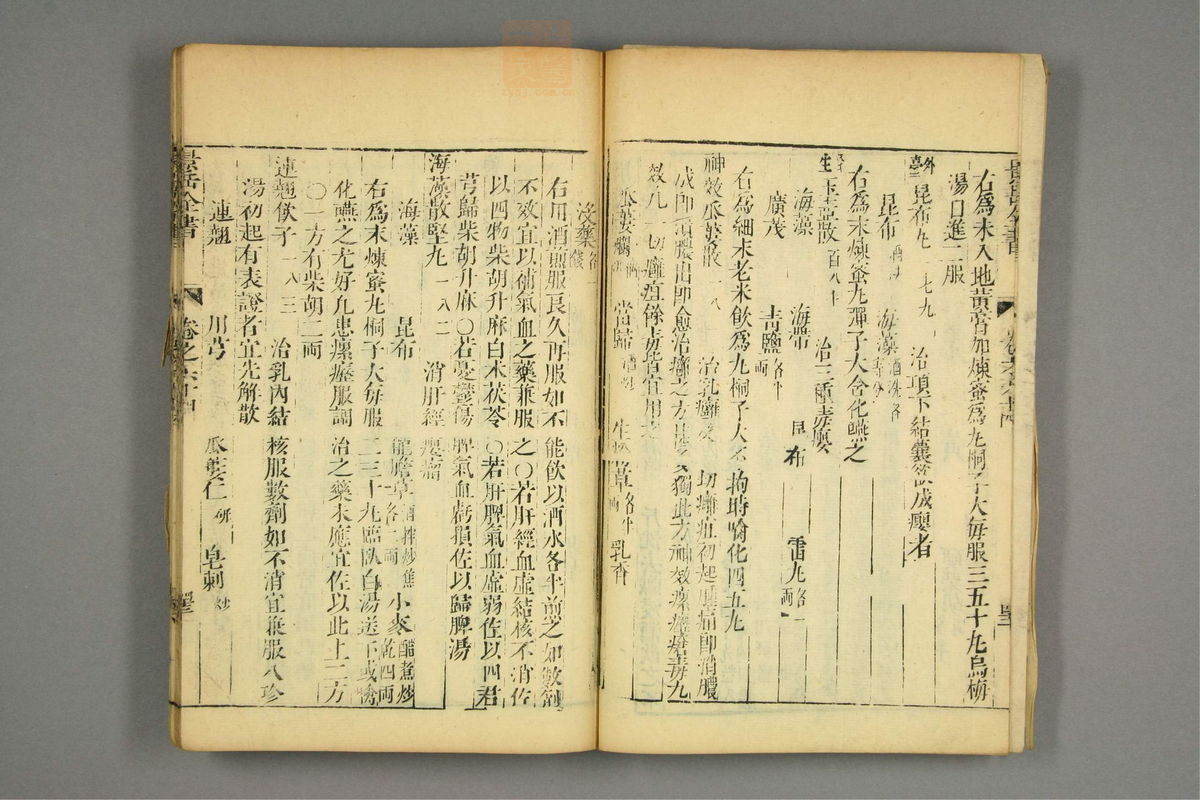 右為末入地黃膏加煉蜜為丸桐子大每服三五十丸烏梅
湯口進二服
外臺昆布丸 一七九 治項下結囊欲成癭者
昆布 酒洗 海藻 酒洗各等分
右為末煉蜜丸彈子大含化嚥之
玉壺散 百八十 治三種毒癭
海藻 海帶 昆布 雷丸 各一兩
廣茂 青鹽 各半兩
右為細末老米飲為丸桐子大不拘時噙化四五丸
神效瓜蔞散 一八 治乳癰及一切癰疽初起腫痛即消膿
成即潰膿出即愈治癰之方甚多獨此方神效瘰癧瘡毒尤
效凡一切癰疽餘毒皆宜用之
瓜蔞 當歸 生 草 各半兩 乳香
沒藥 各一錢
右用酒煎服良久再服如不能飲以酒水各半煎之如數劑
不效宜以補氣血之藥兼服之〇若肝經血虛結核不消佐
以四物柴胡升麻白朮茯苓〇若肝脾氣血虛弱佐以四君
芎歸柴胡升麻〇若憂鬱傷脾氣血虧損佐以歸脾湯
海藻散堅丸 一八二 消肝經癭瘤
海藻 昆布 龍膽草 酒拌炒焦各二兩 小麥 醋煮炒乾四兩
右為末煉蜜丸桐子大每服二三十丸臨臥白湯送下或噙
化嚥之尤好凡患瘰癧服調治之藥未應宜佐以此上二方
〇一方有柴胡二兩
連翹飲子 一八三 治乳內結核服數劑如不消宜兼服八珍
湯初起有表證者宜先解散
連翹 川芎 瓜蔞仁 研 皂刺 炒
景岳全書
卷之六十四